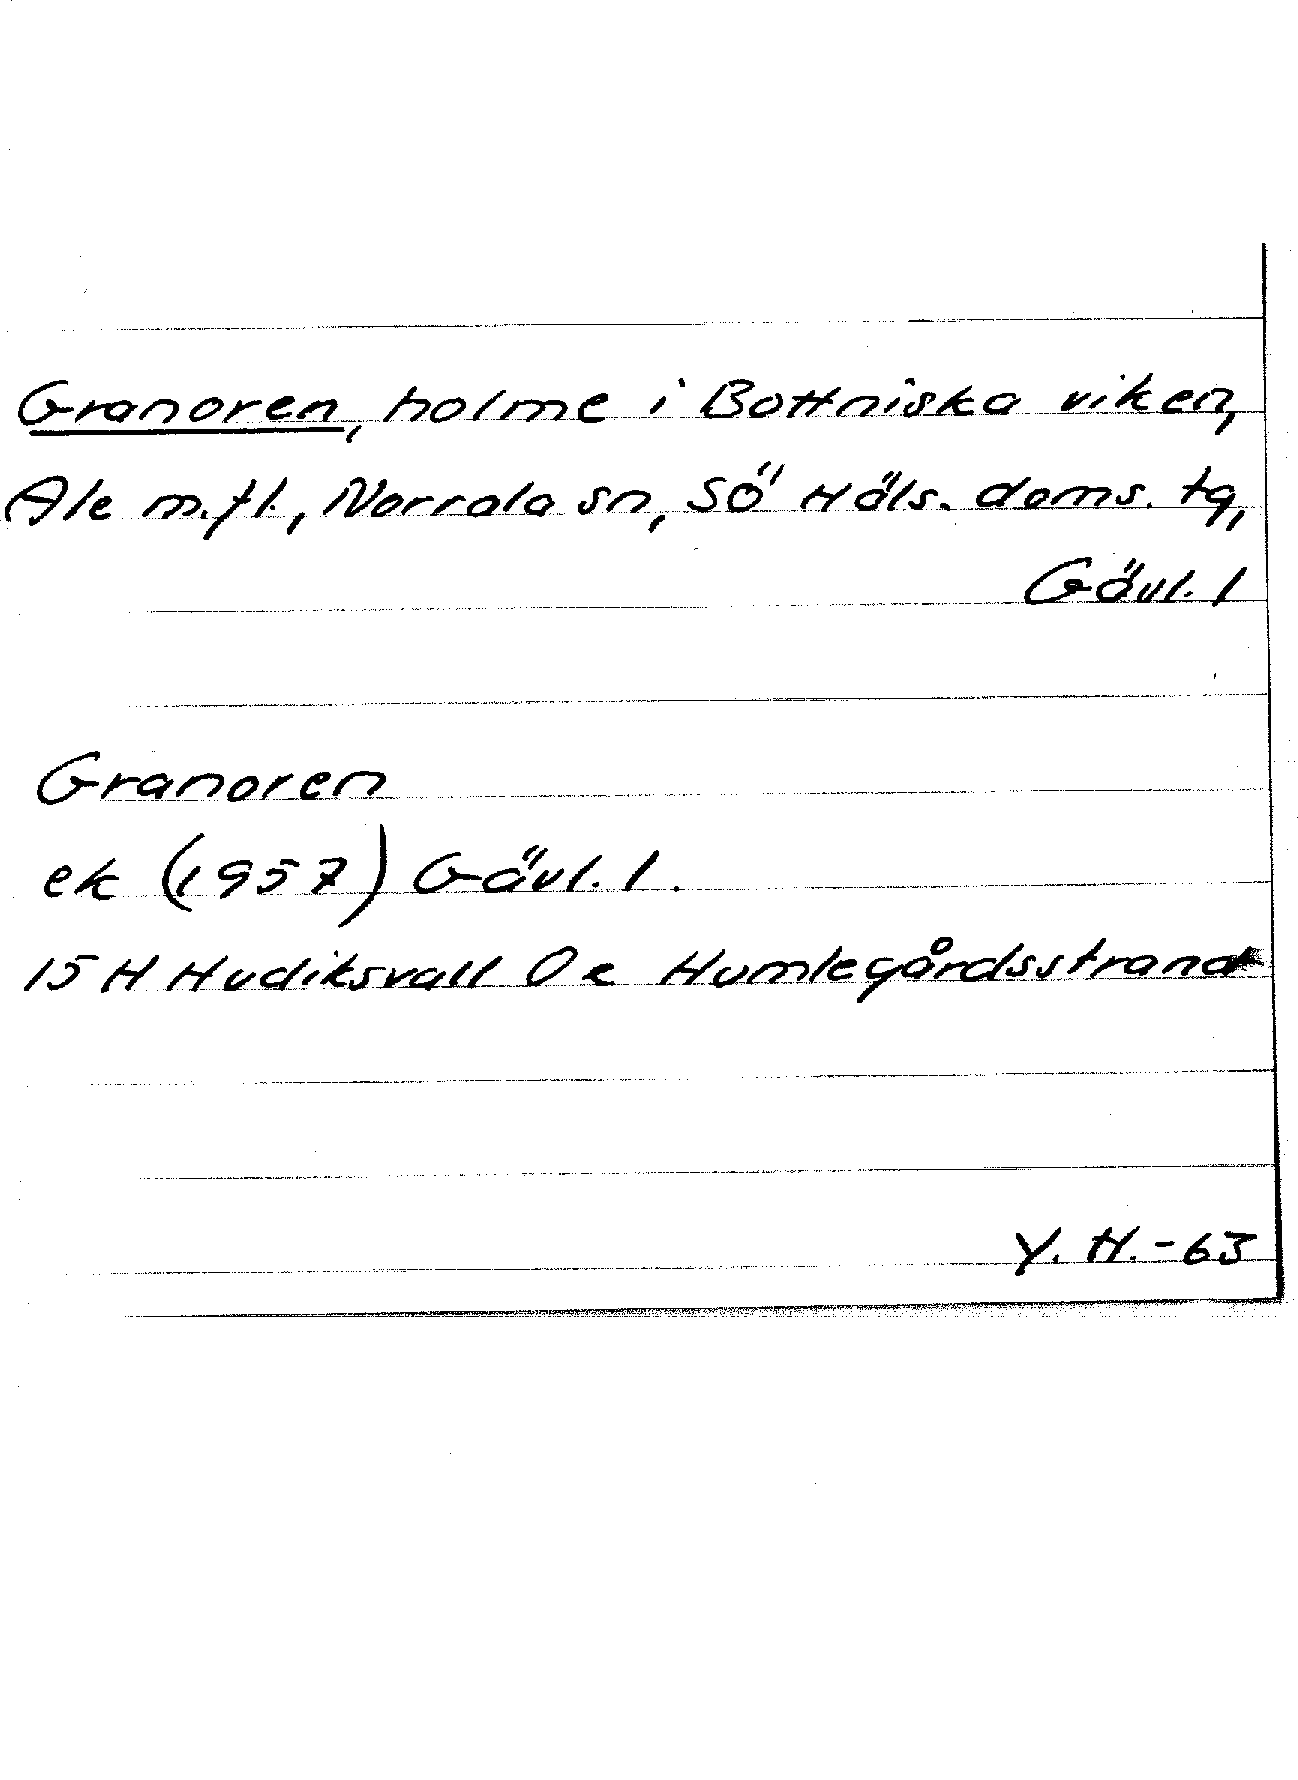 Granoren, holme i Bottniska viken,
Ale m.fl., Norrala sn, Sö Häls. doms. tg,
Gävl. l
Granoren
ek (1957) Gävl. l.
15 H Hudiksvall 0 e Humlegårdsstrand
Y. H.-63